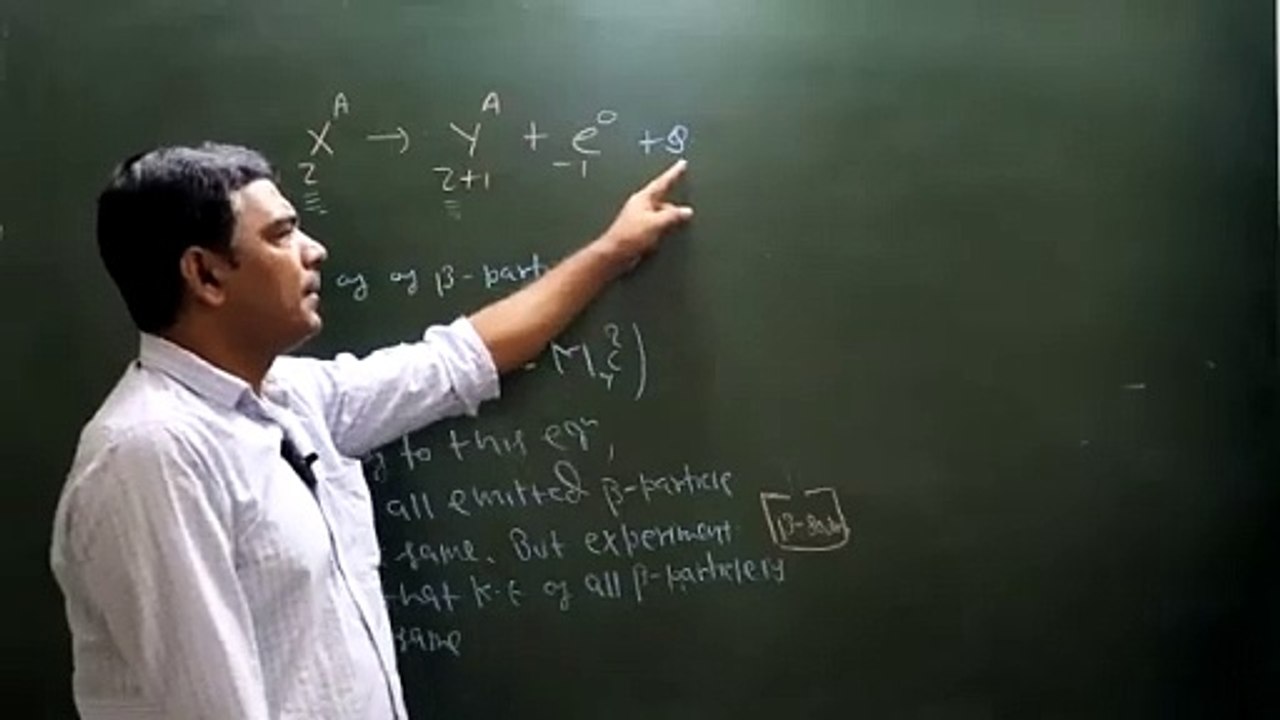 X A → Y A + e 0 + Q
Z Z+1 -1
of β-part
- M Y C 2 )
to this eqn,
all emitted β-particle
same. But experiment
β-Sour
that K.E of all β-particle is
same